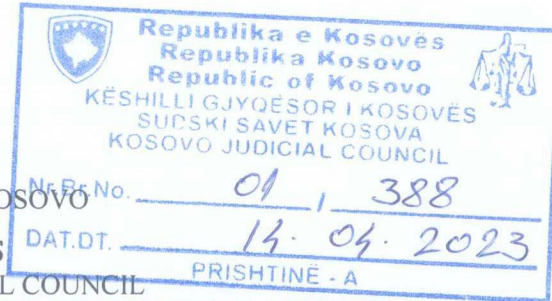 Republika e Kosovës
Republika Kosova
Republic of Kosovo
KËSHILLI GJYQËSOR I KOSOVËS
SUDSKI SAVET KOSOVA
KOSOVO JUDICIAL COUNCIL
OSOVO
Nr.Br.No. 01 / 388
S
DAT.DT. 14. 04. 2023
L COUNCIL
PRISHTINË - A